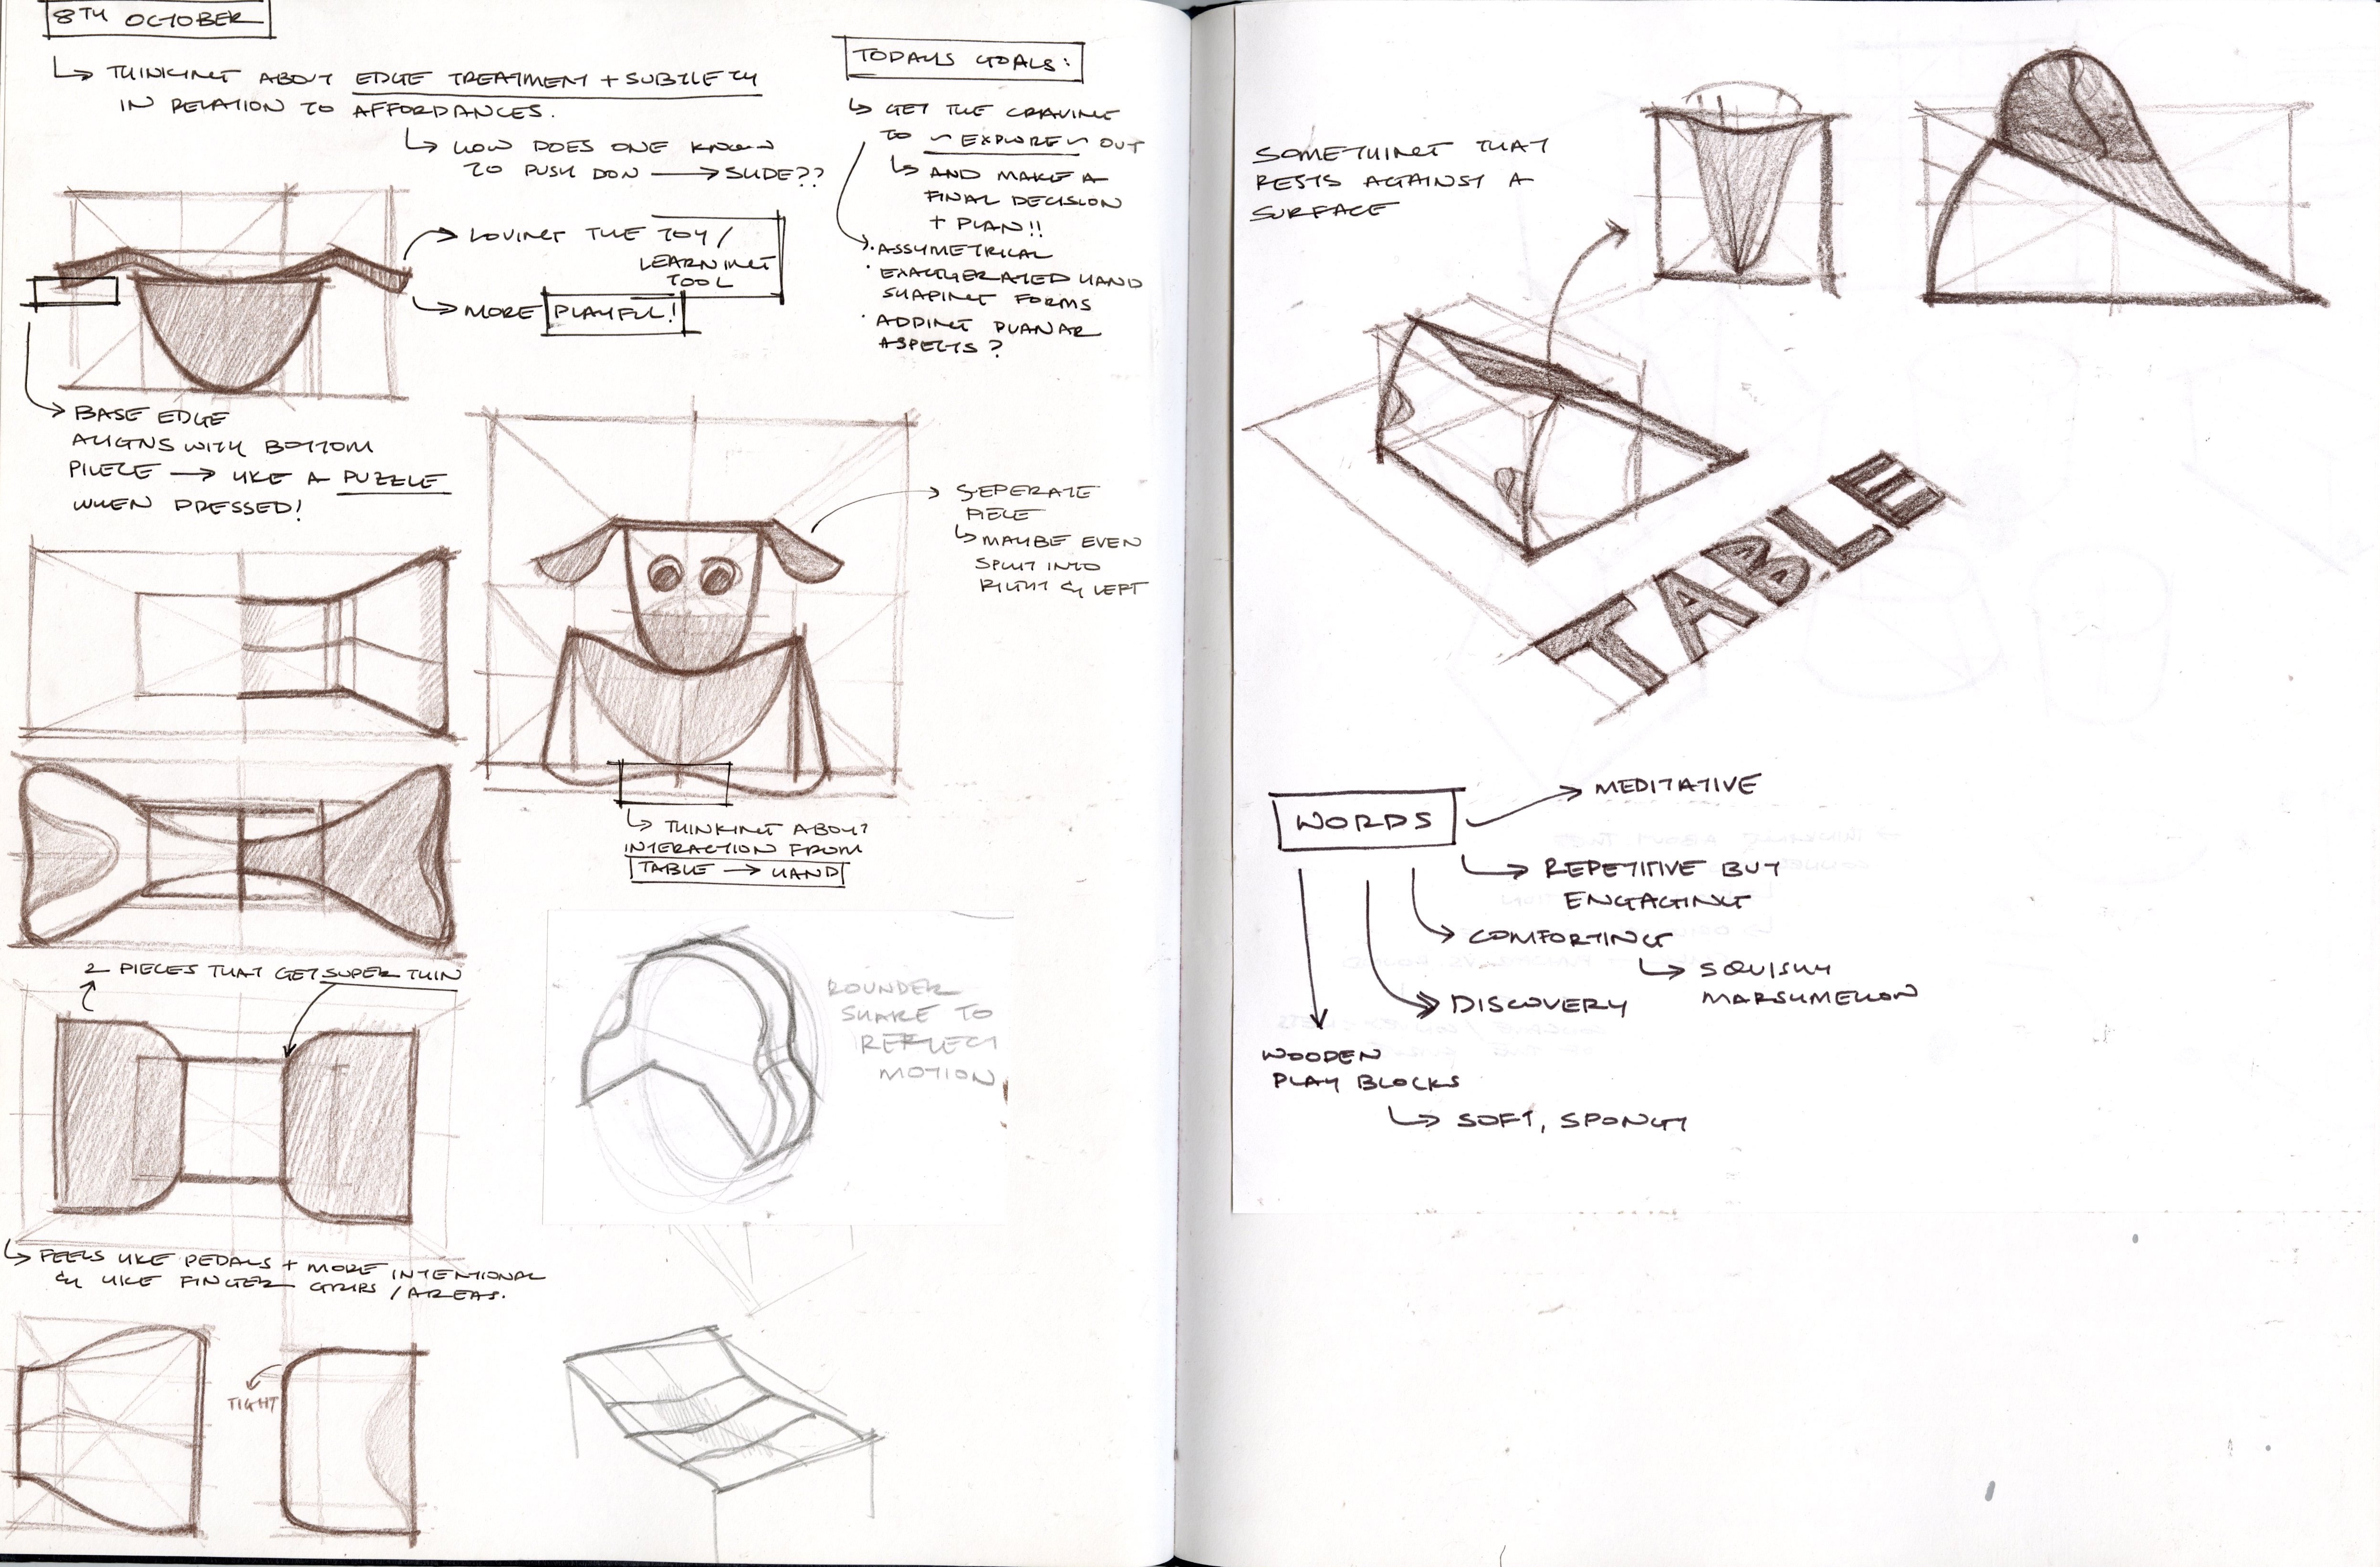 8TH OCTOBER
THINKING ABOUT EDGE TREATMENT + SUBTLETY
IN RELATION TO AFFORDANCES.
HOW DOES ONE KNOW
TO PUSH DON → SLIDE??
LOVING THE TOY /
LEARNING
TOOL
MORE PLAYFUL!
BASE EDGE
ALIGNS WITH BOTTOM
PIECE → LIKE A PUZZLE
WHEN PRESSED!
TODAYS GOALS:
GET THE CRAVING
TO ~ EXPLORE ~ OUT
AND MAKE A
FINAL DECISION
+ PLAN!!
· ASSYMETRICAL
· EXAGGERATED HAND
SHAPING FORMS
· ADDING PLANAR
ASPECTS?
SEPERATE
PIECE
MAYBE EVEN
SPLIT INTO
RIGHT & LEFT
THINKING ABOUT
INTERACTION FROM
TABLE → HAND
2 PIECES THAT GET SUPER THIN
FEELS LIKE PEDALS + MORE INTENTIONAL
& LIKE FINGER GRIPS / AREAS.
TIGHT
ROUNDER
SHAPE TO
REFLECT
MOTION
SOMETHING THAT
RESTS AGAINST A
SURFACE
TABLE
WORDS
MEDITATIVE
REPETITIVE BUT
ENGAGING
COMFORTING
SQUISHY
MARSHMELLON
DISCOVERY
WOODEN
PLAY BLOCKS
SOFT, SPONGY